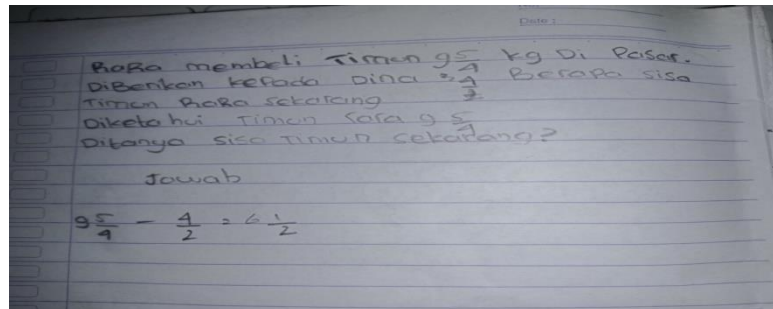 Date :
RaRa membeli Timun 9 5/4 kg Di Pasar.
DiBerikan kepada Dina 4/2 Berapa sisa
Timun RaRa sekarang
Diketahui Timun rara 9 5/4
Ditanya sisa Timun sekarang?
Jawab
9 5/4 - 4/2 = 6 1/2